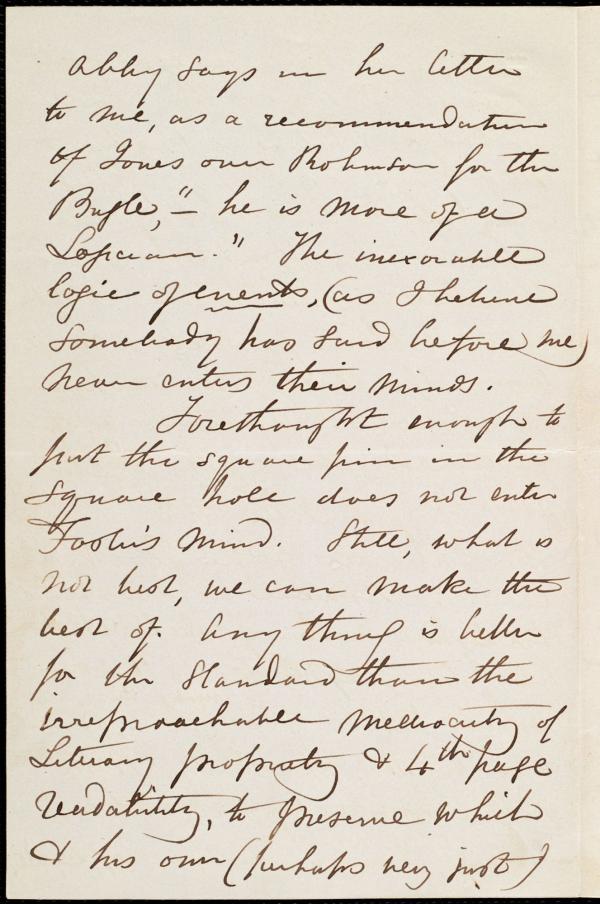 Abby says in her letter
to me, as a recommendation
of Jones over Robinson for the
Bugle, "— he is more of a
Logician." The inexorable
logic of events, (as I believe
somebody has said before me)
never enters their minds.
Forethought enough to
put the square pin in the
square hole does not enter
Foster's mind. Still, what is
not best, we can make the
best of. Any thing is better
for the Standard than the
irreproachable mediocrity of
Literary propriety & 4th page
readability, to preserve which
& his own (perhaps very just)